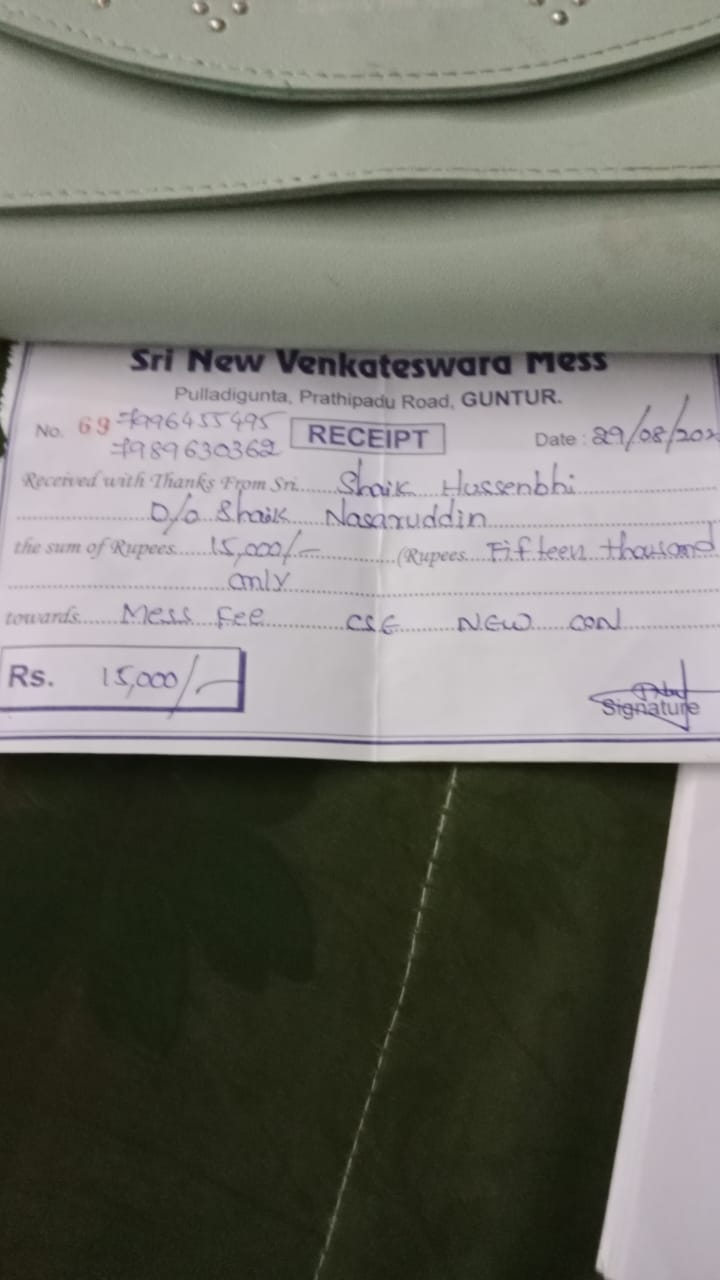 Sri New Venkateswara Mess
Pulladigunta, Prathipadu Road, GUNTUR.
No. 69 7996455495
7989630362
RECEIPT
Date : 29/08/202
Received with Thanks From Sri. Shaik Hussenbhi
D/o Shaik Nasaruddin
the sum of Rupees 15,000/- (Rupees Fifteen thousand
only
towards Mess Fee CSE NEW CON
Rs. 15,000/-
Signature